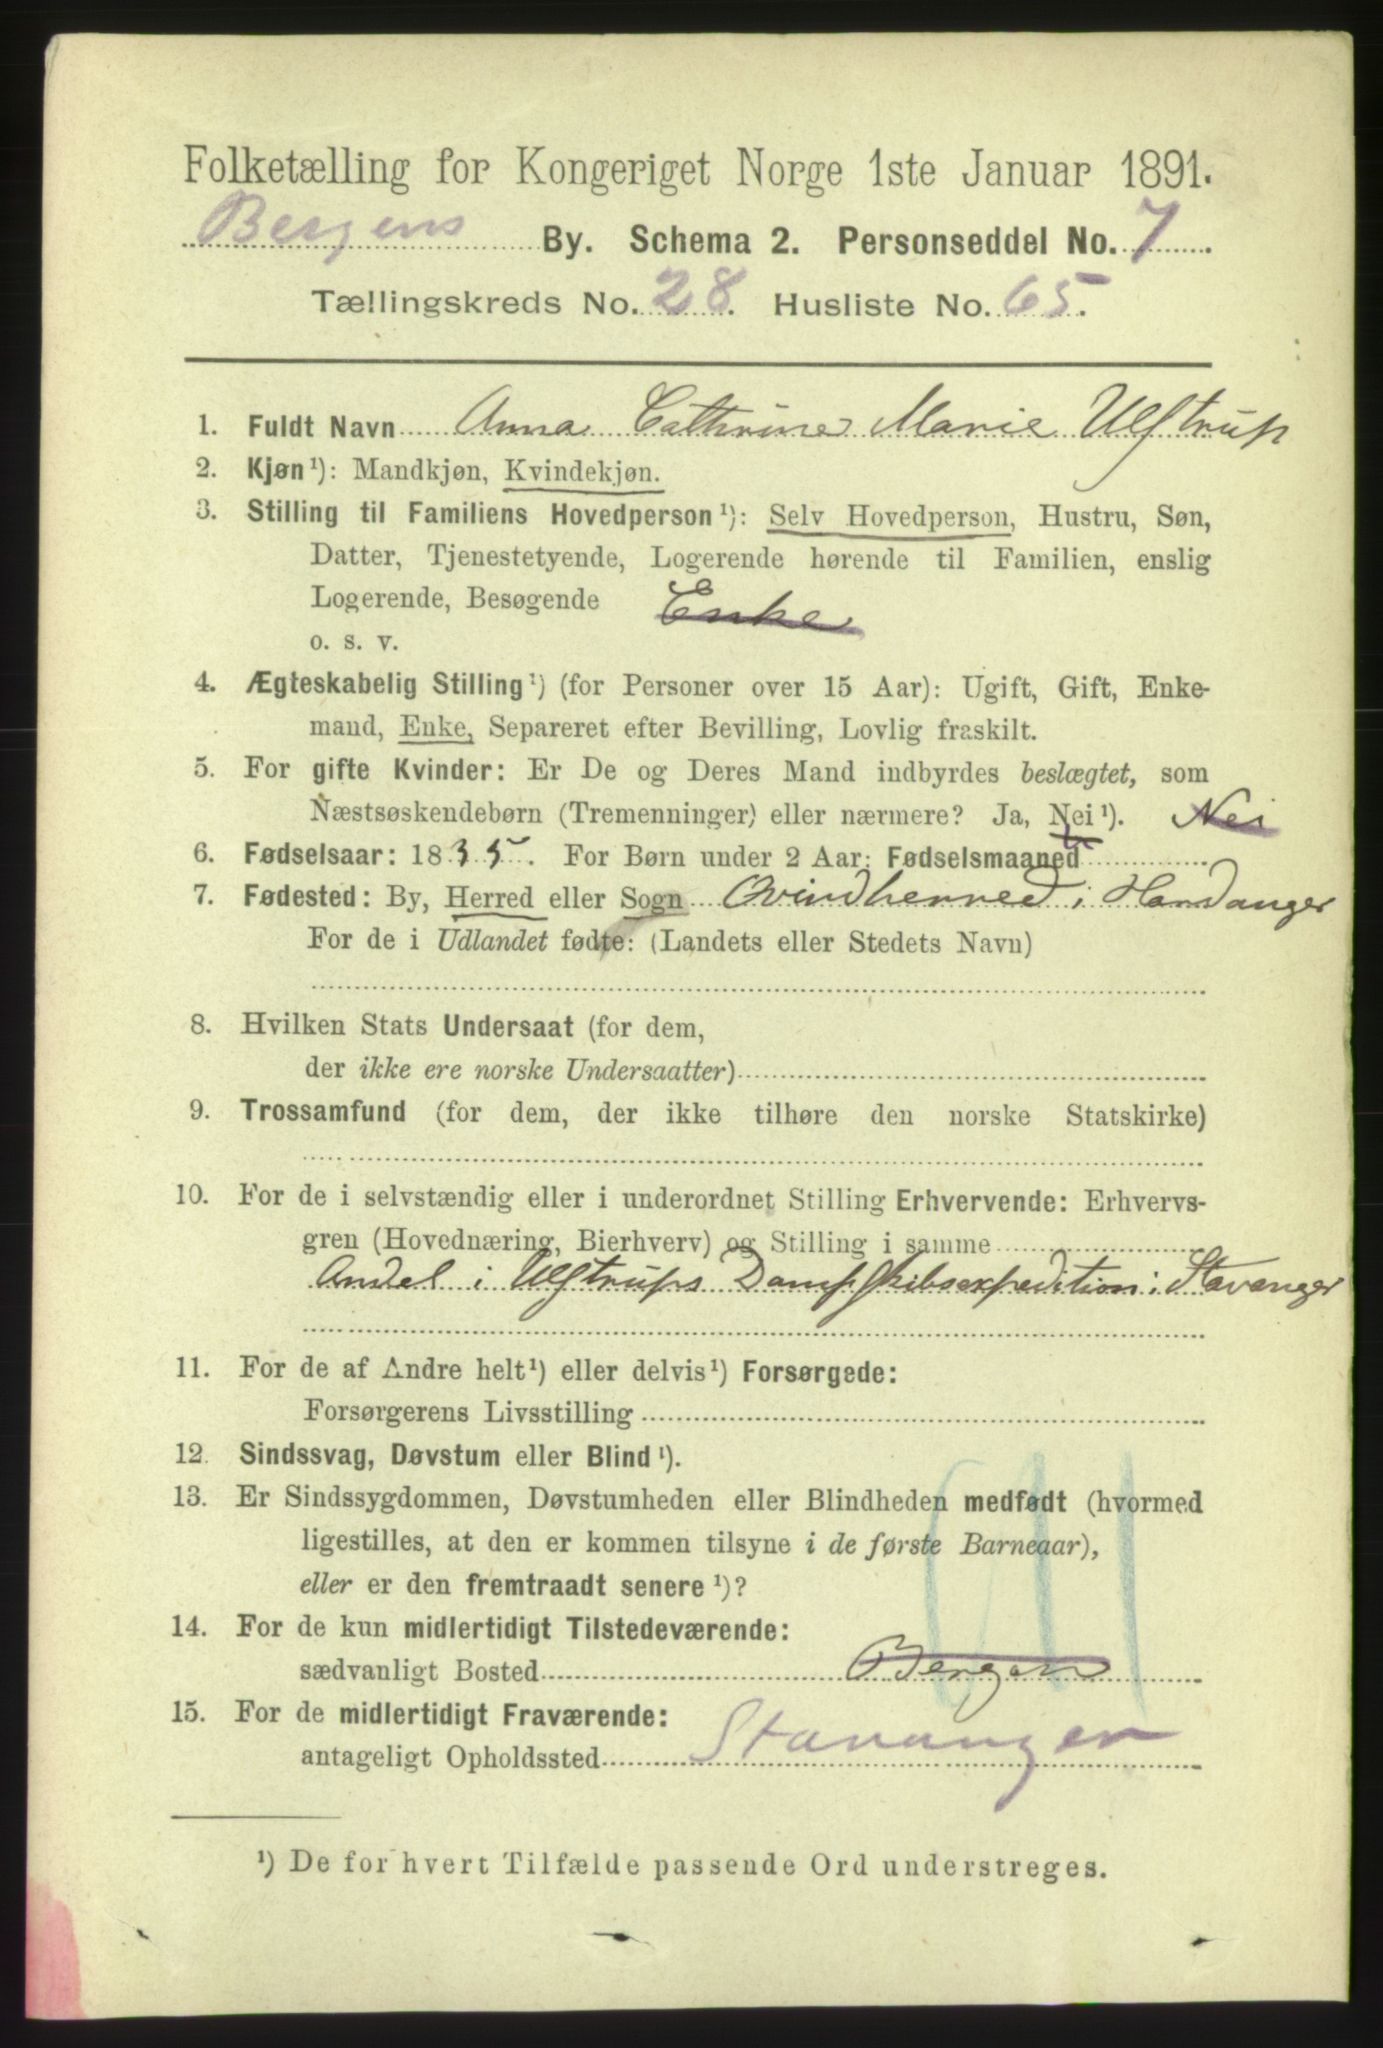 Folketælling for Kongeriget Norge 1ste Januar 1891.
Bergens By. Schema 2. Personseddel No. 7
Tællingskreds No. 28. Husliste No. 65.
1. Fuldt Navn Anna Cathrine Marie Ulstrup
2. Kjøn ¹): Mandkjøn, Kvindekjøn.
3. Stilling til Familiens Hovedperson ¹): Selv Hovedperson, Hustru, Søn,
Datter, Tjenestetyende, Logerende hørende til Familien, enslig
Logerende, Besøgende Enke
o. s. v.
4. Ægteskabelig Stilling ¹) (for Personer over 15 Aar): Ugift, Gift, Enke-
mand, Enke, Separeret efter Bevilling, Lovlig fraskilt.
5. For gifte Kvinder: Er De og Deres Mand indbyrdes beslægtet, som
Næstsøskendebørn (Tremenninger) eller nærmere? Ja, Nei ¹). Nei
6. Fødselsaar: 1835. For Børn under 2 Aar: Fødselsmaaned
7. Fødested: By, Herred eller Sogn Qvindherred i Hardanger
For de i Udlandet fødte: (Landets eller Stedets Navn)
8. Hvilken Stats Undersaat (for dem,
der ikke ere norske Undersaatter)
9. Trossamfund (for dem, der ikke tilhøre den norske Statskirke)
10. For de i selvstændig eller i underordnet Stilling Erhvervende: Erhvervs-
gren (Hovednæring, Bierhverv) og Stilling i samme
Andel i Ulstrups Dampskibsexpedition i Stavanger
11. For de af Andre helt ¹) eller delvis ¹) Forsørgede:
Forsørgerens Livsstilling
12. Sindssvag, Døvstum eller Blind ¹).
13. Er Sindssygdommen, Døvstumheden eller Blindheden medfødt (hvormed
ligestilles, at den er kommen tilsyne i de første Barneaar),
eller er den fremtraadt senere ¹)?
14. For de kun midlertidigt Tilstedeværende:
sædvanligt Bosted Bergen
15. For de midlertidigt Fraværende:
antageligt Opholdssted Stavanger
¹) De for hvert Tilfælde passende Ord understreges.